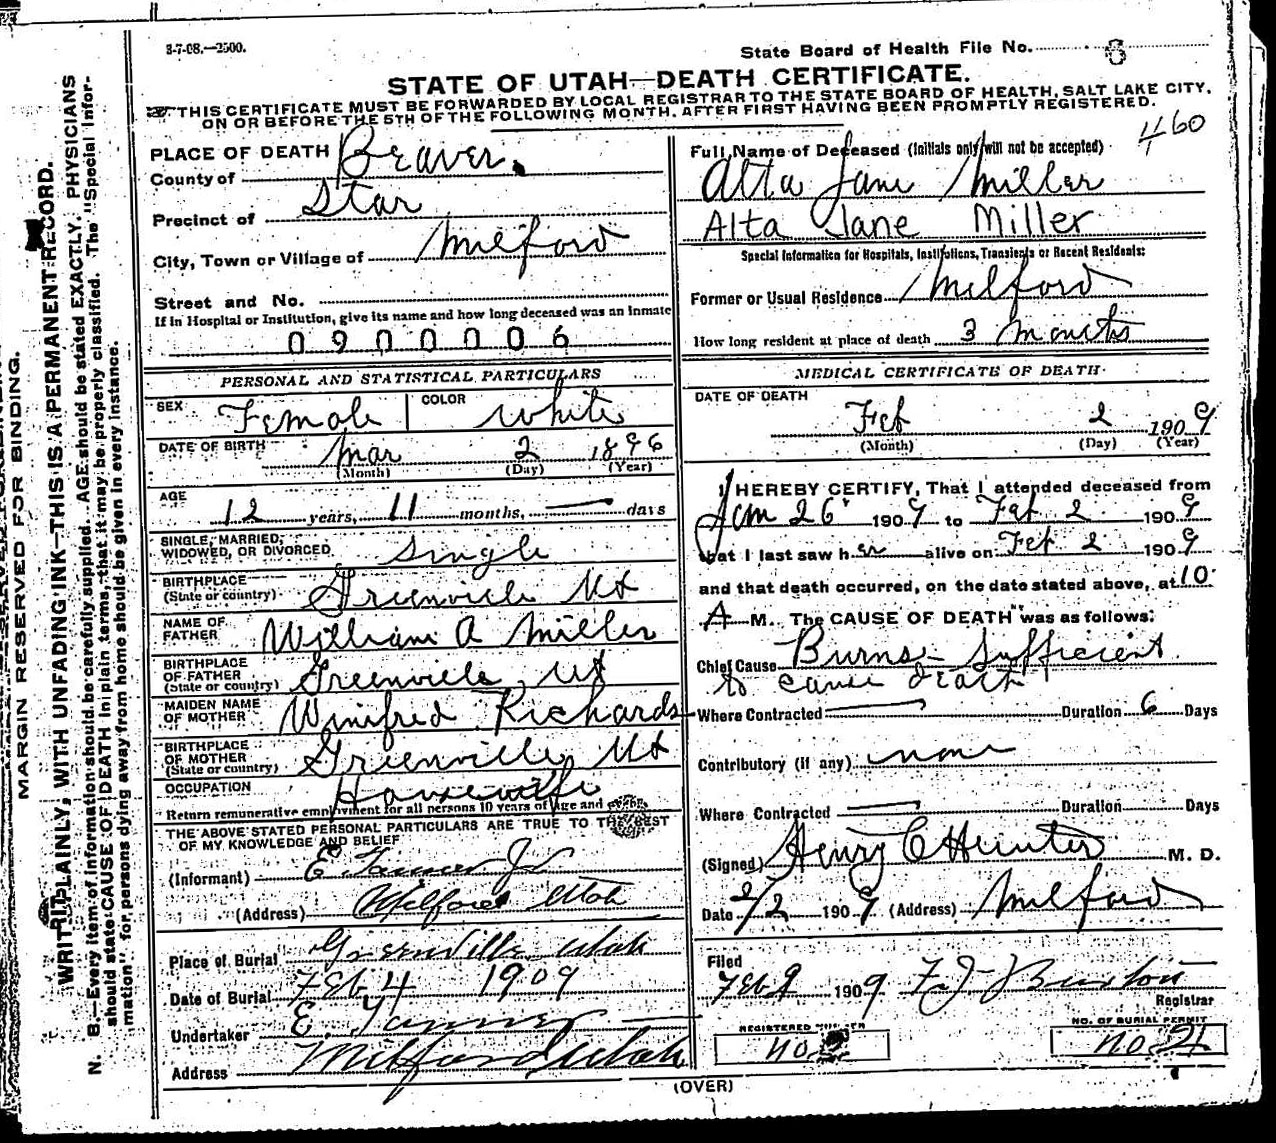 3-7-08.—2500.
State Board of Health File No. 6
STATE OF UTAH—DEATH CERTIFICATE.
THIS CERTIFICATE MUST BE FORWARDED BY LOCAL REGISTRAR TO THE STATE BOARD OF HEALTH, SALT LAKE CITY,
ON OR BEFORE THE 5TH OF THE FOLLOWING MONTH, AFTER FIRST HAVING BEEN PROMPTLY REGISTERED.
460
MARGIN RESERVED FOR BINDING.
WRITE PLAINLY, WITH UNFADING INK—THIS IS A PERMANENT RECORD.
N. B.—Every item of information should be carefully supplied. AGE should be stated EXACTLY. PHYSICIANS
should state CAUSE OF DEATH in plain terms, that it may be properly classified. The "Special Infor-
mation" for persons dying away from home should be given in every instance.
PLACE OF DEATH
County of Beaver.
Precinct of Star
City, Town or Village of Milford
Street and No.
If in Hospital or Institution, give its name and how long deceased was an inmate
0900006
PERSONAL AND STATISTICAL PARTICULARS
SEX Female COLOR White
DATE OF BIRTH Mar 2 1896
(Month) (Day) (Year)
AGE
12 years, 11 months, — days
SINGLE, MARRIED,
WIDOWED, OR DIVORCED Single
BIRTHPLACE
(State or country) Greenville Ut
NAME OF
FATHER William A Miller
BIRTHPLACE
OF FATHER
(State or country) Greenville Ut
MAIDEN NAME
OF MOTHER Winifred Richards
BIRTHPLACE
OF MOTHER
(State or country) Greenville Ut
OCCUPATION Housewife
Return remunerative employment for all persons 10 years of age and over.
THE ABOVE STATED PERSONAL PARTICULARS ARE TRUE TO THE BEST
OF MY KNOWLEDGE AND BELIEF
(Informant) E Tanner Jr
(Address) Milford Utah
Place of Burial Greenville Utah
Date of Burial Feb 4 1909
Undertaker E. Tanner
Address Milford Utah
Full Name of Deceased (Initials only will not be accepted)
Alta Jane Miller
Alta Jane Miller
Special Information for Hospitals, Institutions, Transients or Recent Residents:
Former or Usual Residence Milford
How long resident at place of death 3 Months
MEDICAL CERTIFICATE OF DEATH
DATE OF DEATH
Feb 2 1909
(Month) (Day) (Year)
I HEREBY CERTIFY, That I attended deceased from
Jan 26 1909 to Feb 2 1909
that I last saw her alive on Feb 2 1909
and that death occurred, on the date stated above, at 10
A M. The CAUSE OF DEATH was as follows:
Chief Cause Burns Sufficient
to cause death
Where Contracted — Duration 6 Days
Contributory (if any) none
Where Contracted — Duration Days
(Signed) Henry C Hunter M. D.
Date 2/2 1909 (Address) Milford
Filed
Feb 9 1909 F. J. Burton
Registrar
REGISTERED NUMBER
No
NO. OF BURIAL PERMIT
no 21
(OVER)